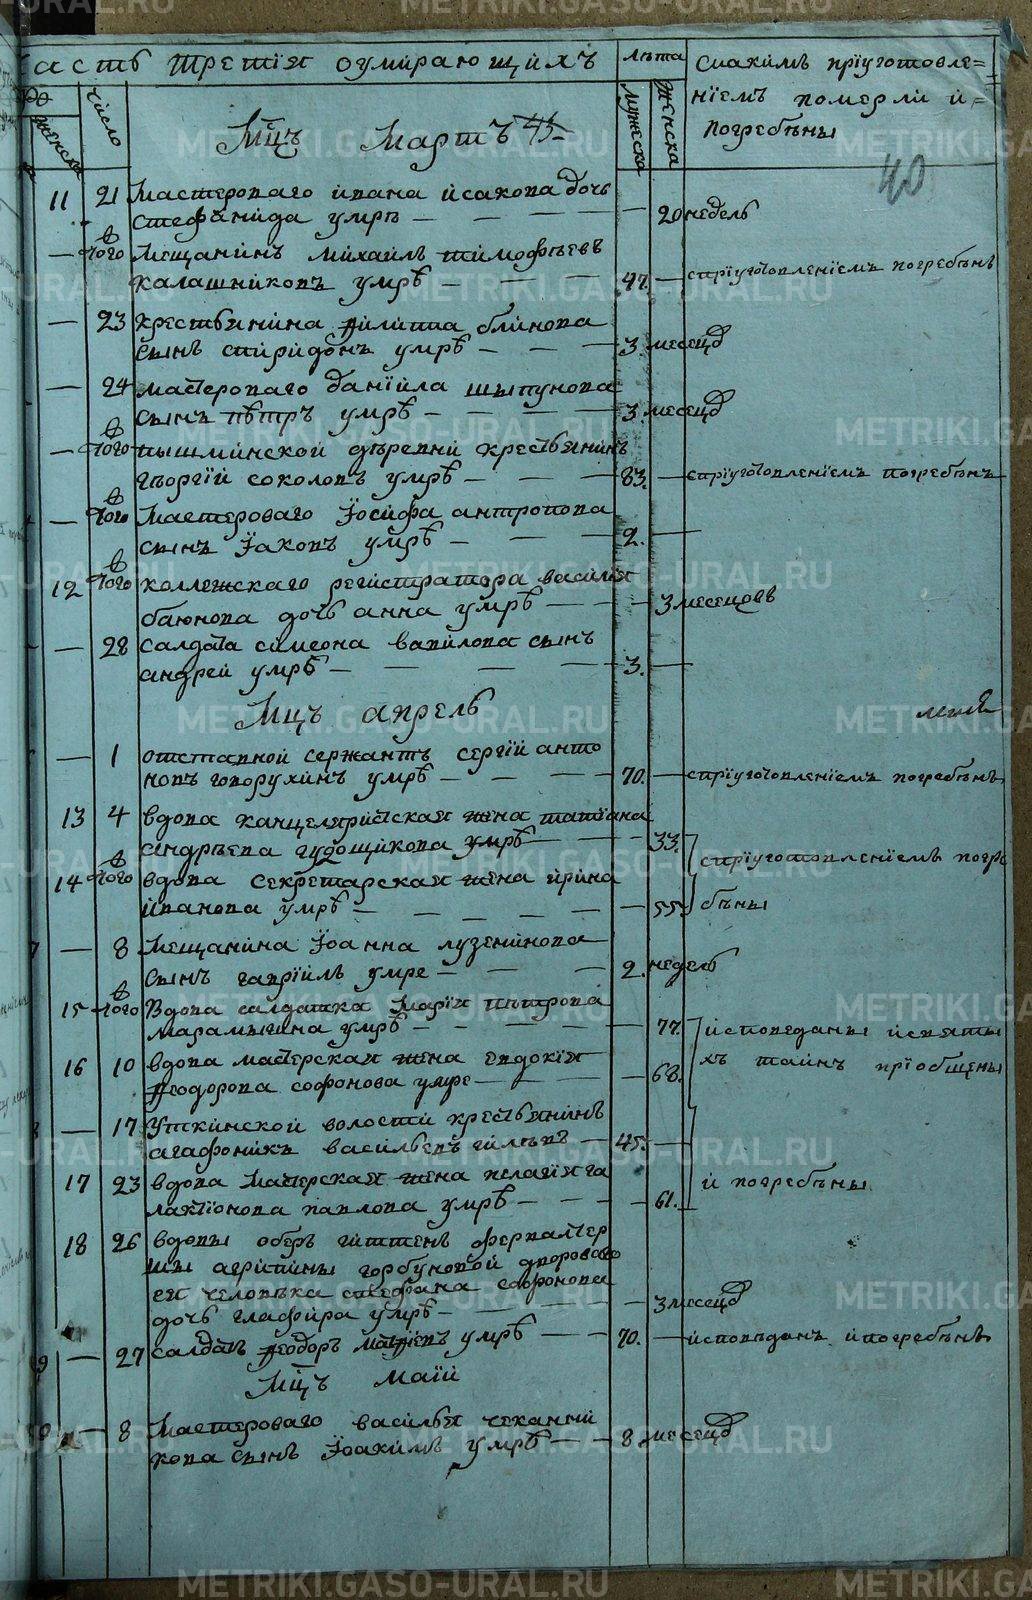 асть третїя оумирающихъ
лѣта
мужеска
женска
съ какимъ прїуготовле=
нїемъ померли и
погребѣны
женска
число
Мцъ Мартъ
40
11 21 Мастероваго ивана исакова дочь
стефанида умрѣ 20 недель
того Мещанинъ михаилъ тимофѣевъ
калашниковъ умрѣ 47. спрїуготовленїемъ погребѣнъ
23 крестьянина филиппа блинова
сынъ спиридонъ умрѣ 3. месеца
24 мастероваго данїила шыпунова
сынъ пѣтръ умрѣ 3. месеца
того пышминской дѣревни крестьянинъ
гѣоргїй соколовъ умрѣ 83. спрїуготовленїемъ погребѣнъ
того Мастероваго Їосифа антропова
сынъ Їаковъ умрѣ 2.
12 того коллежскаго регистратора василїя
баюнова дочь анна умрѣ 3 месецовъ
28 салдата симеона вавилова сынъ
андрей умрѣ 3.
Мцъ апрель
1 отставной сержантъ сергїй анто
новъ говорухинъ умрѣ 70. спрїуготовленїемъ погребѣнъ
13 4 вдова канцеляристская жена татїана
андрѣева гудощикова умрѣ 33. спрїуготовленїемъ погре
14 того вдова секретарская жена ирина
иванова умрѣ 55. бѣны
8 Мещанина Їоанна лузенинова
сынъ гаврїилъ умре 2. недель
15 того Вдова салдатка марїя пѣтрова
марамыгина умрѣ 77. исповеданы исвяты
16 10 вдова мастерская жена евдокїя хъ таинъ прїобщены
феодорова софонова умре 68.
17 Уткинской волости крестьянинъ
агафоникъ васильевъ гилѣвъ 45.
17 23 вдова Мастерская жена пелагїя га и погребѣны
лактїонова павлова умрѣ 61.
18 26 вдовы оберъ гиттенъ фервалтер
шы агрипины горбуновой дворового
ея человѣка стефана софронова
дочь глафира умрѣ 3 месеца
27 салдатъ феодоръ умрѣ 70. исповѣданъ ипогребѣнъ
Мцъ маїй
8 Мастероваго василья чеканни
кова сынъ Їоакимъ умрѣ 8. месеца
METRIKI.GASO-URAL.RU